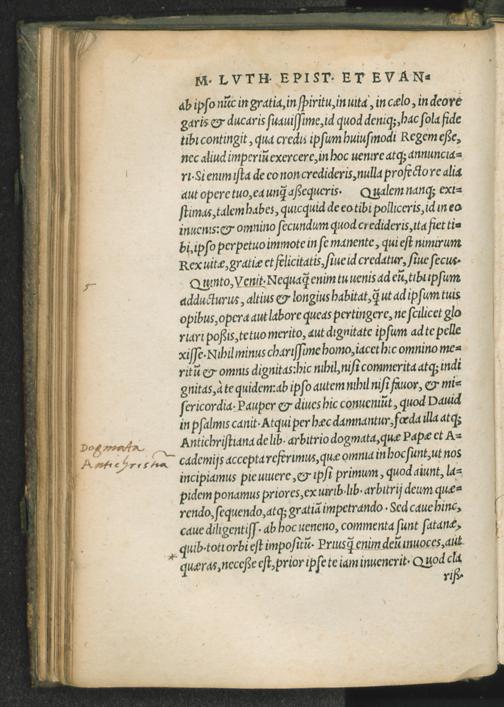 M. LVTH. EPIST. ET EVAN=
ab ipso nũc in gratia, in spiritu, in vita, in cælo, in deo re
garis & ducaris suauissime, id quod deniq;, hac sola fide
tibi contingit, qua credis ipsum huiusmodi Regem esse,
nec aliud imperiũ exercere, in hoc venire atq; annuncia=
ri. Si enim ista de eo non credideris, nulla profecto re alia
aut opere tuo, ea unq̃ assequeris. Qualem nanq; exi=
stimas, talem habes, quicquid de eo tibi polliceris, id in eo
inuenis: & omnino secundum quod credideris, ita fiet ti=
bi, ipso perpetuo immote in se manente, qui est nimirum
Rex vitæ, gratiæ et felicitatis, siue id credatur, siue secus.
5
Quinto, Venit. Nequaq̃ enim tu venis ad eũ, tibi ipsum
adducturus, altius & longius habitat, q̃ ut ad ipsum tuis
opibus, opera aut labore queas pertingere, ne scilicet glo
riari possis, te tuo merito, aut dignitate ipsum ad te pelle
xisse. Nihil minus charissime homo, iacet hic omnino me=
ritũ & omnis dignitas: hic nihil, nisi commerita atq; indi
gnitas, à te quidem: ab ipso autem nihil nisi fauor, & mi=
sericordia. Pauper & diues hic conueniũt, quod Dauid
in psalmis canit. Atqui per hæc damnantur, fœda illa atq;
Dogmata
Antichristiana de lib. arbitrio dogmata, quæ Papæ et A=
Antichristiã
cademijs accepta referimus, quæ omnia in hoc sunt, ut nos
incipiamus pie viuere, & ipsi primum, quod aiunt, la=
pidem ponamus priores, ex virib. lib. arbitrij deum quæ=
rendo, sequendo, atq; gratiã impetrando. Sed caue hinc,
caue diligentiss. ab hoc veneno, commenta sunt satanæ,
quib. toti orbi est impositũ. Priusq̃ enim deũ inuoces, aut
* quæras, necesse est, prior ipse te iam inuenerit. Quod cla
riss.